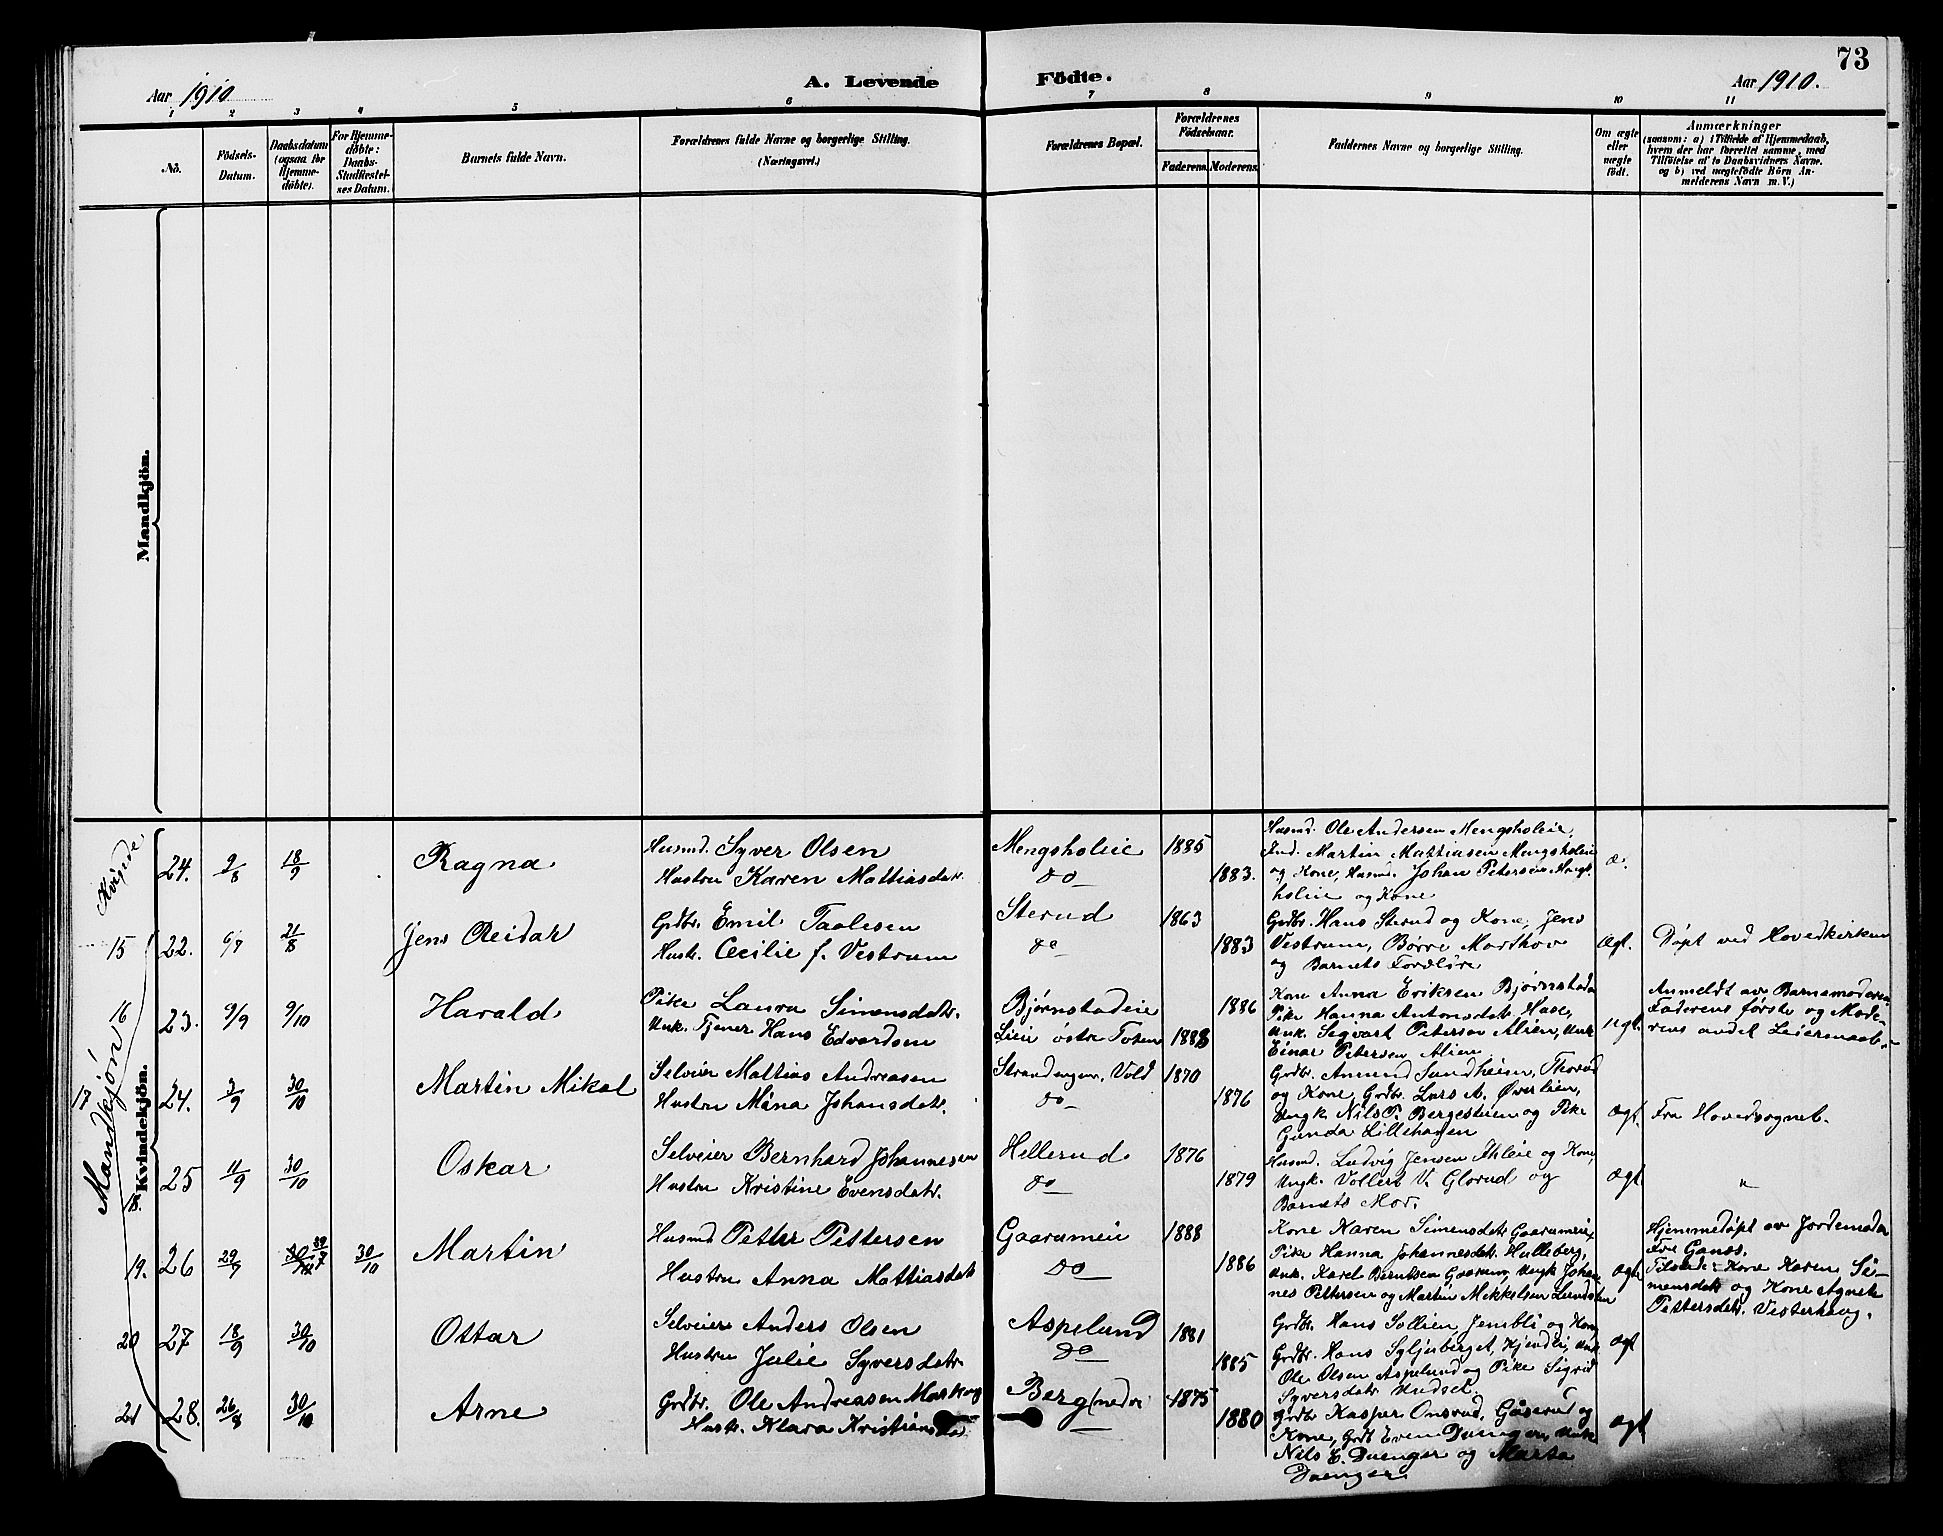 73
Aar 1910.
A. Levende Födte.
Aar 1910.
1 2 3 4 5 6 7 8 9 10 11
No.
Födsels-Datum.
Daabsdatum (ogsaa for Hjemme-döbte).
For Hjemme-döbte: Daabs-Stadfæstel-ses Datum.
Barnets fulde Navn.
Forældrenes fulde Navne og borgerlige Stilling. (Næringsvei.)
Forældrenes Bopæl.
Forældrenes Födselsaar.
Faderens. Moderens.
Faddernes Navne og borgerlige Stilling.
Om ægte eller uægte födt.
Anmærkninger
(saasom: a) i Tilfælde af Hjemmedaab, hvem der har forrettet samme, med Tilföielse af to Daabsvidners Navne. og b) ved uægtefödte Börn An-melderens Navn m. V.)
Mandkjön.
Kvindekjön.
Kvinde
Mandkjön
24. 9/8 18/9 Ragna
Husmd. Syver Olsen
Hustru Karen Mattiasdatr.
Mengsholeie
do
1885
1883.
Husmd. Ole Andersen Mengsholeie,
Ind. Martin Mattiasen Mengsholeie
og Kone, Husmd. Johan Petersen Mengs-
holeie og Kone
æ.
15 22. 6/7 21/8 Jens Reidar
Grdbr. Emil Taalesen
Hustr. Cecilie f. Vestrum
Sterud
do
1863
1883
Grdbr. Hans Sterud og Kone, Jens
Vestrum, Børre Marthov
og Barnets Forældre
Ægt.
Døpt ved Hovedkirken
16 23. 9/9 9/10 Harald
Pike Laura Simensdatr.
Unk. Tjener Hans Edvardsen
Bjørnstadeie
Lien østre Toten
1886
1888
Kone Anna Eriksen Bjørnstad
Pike Hanna Antonsdatr. Hase,
Unk. Sigvart Petersen Alien, Unk
Einar Petersen Alien
uægt.
Anmeldt av Barnemoderen
Faderens første og Mode-
rens andet Leiermaal.
17 24. 3/9 30/10 Martin Mikal
Selveier Mattias Andreasen
Hustru Mina Johansdatr.
Strandengen, Vold
do
1870
1876
Grdbr. Amund Sundheim, Thorud
og Kone, Grdbr. Lars A. Øverlien,
Ungk. Nils P. Bergesteien og Pike
Gunda Lillehagen
ægt.
Fra Hovedsognet.
18. 25 11/9 30/10 Oskar
Selveier Bernhard Johannesen
Hustru Kristine Evensdatr.
Hellerud
do
1876
1879
Husmd. Ludvig Jensen Ahleie og Kone,
Ungk. Vollert V. Glorud og
Barnets Mor.
ægt.
"
19. 26 29/7 30/10 Martin
Husmd Petter Pettersen
Hustru Anna Mattiasdatr
Gaarumeie
do
1888
1886
Kone Karen Simensdatr. Gaarumeie,
Pike Hanna Johannesdatr. Hulleberg,
Unk. Karel Berntsen Gaarum, Ungk Johan-
nes Pettersen og Martin Mikkelsen
ægte
Hjemmedøpt av Jordemoder
Fru Gauss.
Tilstede: Kone Karen Si-
mensdatr og Kone Agnete
Pettersdatr. Vesterhaug.
20 27 18/9 30/10 Ottar
Selveier Anders Olsen
Hustru Julie Syversdatr
Aspelund
do
1881
1885
Grdbr. Hans Sollien Jembli og Kone
Grdbr. Hans Syljuberget, Kjendli, Unk
Ole Olsen Aspelund og Pike Sigrid
Syversdatr Undset.
ægt
21 28. 26/8 30/10 Arne
Grdbr. Ole Andreasen
Hustr. Klara Kristiansdatr.
Berg (nedre
1875
1880
Grdbr Kasper Onsrud, Gåserud og
Kone, Grdb Even Duenger, Unk
Nils E. Duenger og Marta
Duenger.
ægt